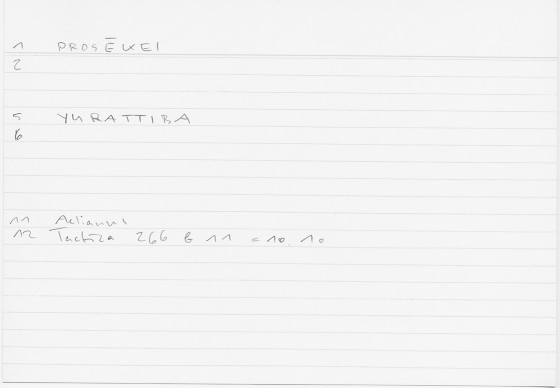 1 PROSĒUEI
2
5 YURATTIBA
6
11 Aelianus
12 Tactica 266 B 11 = 10. 10